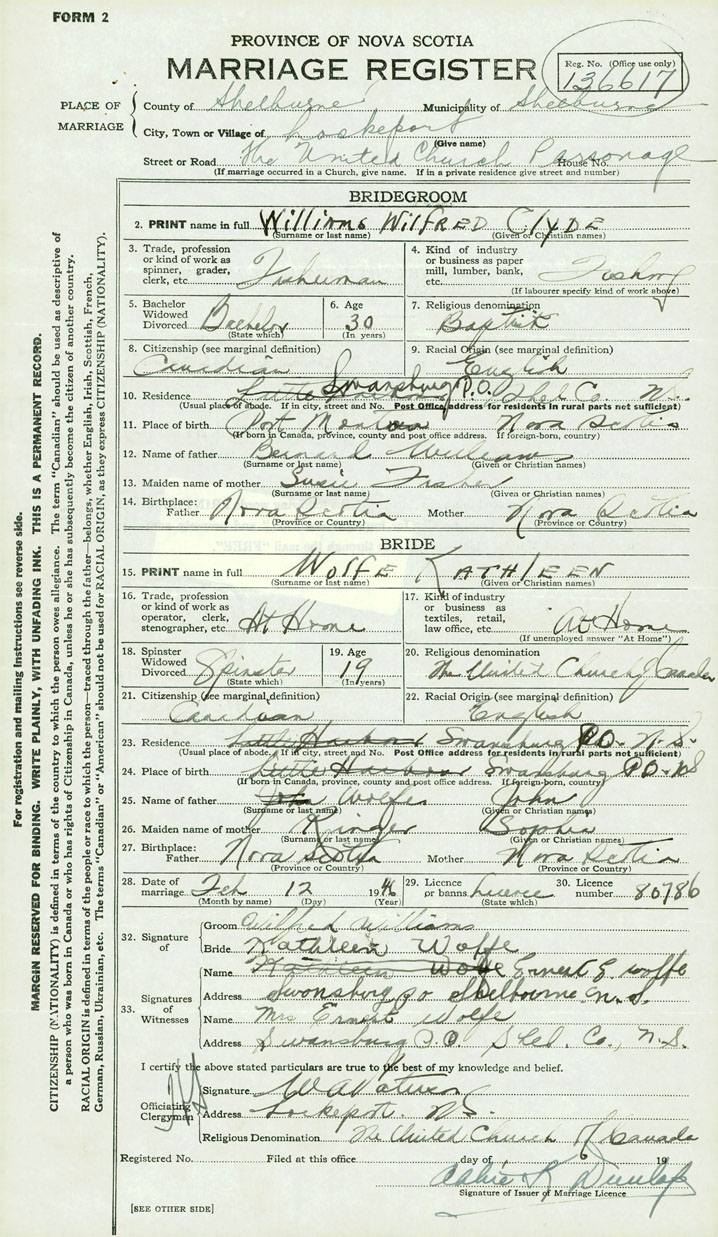 FORM 2
PROVINCE OF NOVA SCOTIA
MARRIAGE REGISTER
Reg. No. (Office use only)
136617
PLACE OF MARRIAGE
County of Shelburne Municipality of Shelburne
City, Town or Village of Lockeport
(Give name)
Street or Road The United Church Parsonage House No.
(If marriage occurred in a Church, give name. If in a private residence give street and number)
BRIDEGROOM
2. PRINT name in full Williams Wilfred Clyde
(Surname or last name) (Given or Christian names)
3. Trade, profession or kind of work as spinner, grader, clerk, etc. Fisherman
4. Kind of industry or business as paper mill, lumber, bank, etc. Fishing
(If labourer specify kind of work above)
5. Bachelor Widowed Divorced Bachelor
(State which)
6. Age 30
(In years)
7. Religious denomination Baptist
8. Citizenship (see marginal definition) Canadian
9. Racial Origin (see marginal definition) English
10. Residence Little Harbour Swansburg P.O. Shel Co. N.S.
(Usual place of abode. If in city, street and No. Post Office address for residents in rural parts not sufficient)
11. Place of birth Port Mouton Nova Scotia
(If born in Canada, province, county and post office address. If foreign-born, country)
12. Name of father Bernard Williams
(Surname or last name) (Given or Christian names)
13. Maiden name of mother Susie Fisher
(Surname or last name) (Given or Christian names)
14. Birthplace: Father Nova Scotia Mother Nova Scotia
(Province or Country) (Province or Country)
BRIDE
15. PRINT name in full Wolfe Kathleen
(Surname or last name) (Given or Christian names)
16. Trade, profession or kind of work as operator, clerk, stenographer, etc. At Home
17. Kind of industry or business as textiles, retail, law office, etc. At Home
(If unemployed answer "At Home")
18. Spinster Widowed Divorced Spinster
(State which)
19. Age 19
(In years)
20. Religious denomination The United Church of Canada
21. Citizenship (see marginal definition) Canadian
22. Racial Origin (see marginal definition) English
23. Residence Little Harbour Swansburg P.O. N.S.
(Usual place of abode. If in city, street and No. Post Office address for residents in rural parts not sufficient)
24. Place of birth Little Harbour Swansburg P.O. N.S
(If born in Canada, province, county and post office address. If foreign-born, country)
25. Name of father John Wolfe John
(Surname or last name) (Given or Christian names)
26. Maiden name of mother Ringer Sophia
(Surname or last name) (Given or Christian names)
27. Birthplace: Father Nova Scotia Mother Nova Scotia
(Province or Country) (Province or Country)
28. Date of marriage Feb 12 1946
(Month by name) (Day) (Year)
29. Licence or banns Licence
(State which)
30. Licence number 80786
32. Signature of
Groom Wilfred Williams
Bride Kathleen Wolfe
33. Signatures of Witnesses
Name Kathleen Wolfe Ernest E. Wolfe
Address Swansburg P.O Shelbourne N.S.
Name Mrs Ernest Wolfe
Address Swansburg P.O. Shel. Co., N.S.
I certify the above stated particulars are true to the best of my knowledge and belief.
Officiating Clergyman
Signature
Address Lockeport. N.S.
Religious Denomination The United Church of Canada
Registered No. Filed at this office day of 19
Dunlop
Signature of Issuer of Marriage Licence
[SEE OTHER SIDE]
For registration and mailing instructions see reverse side.
MARGIN RESERVED FOR BINDING. WRITE PLAINLY, WITH UNFADING INK. THIS IS A PERMANENT RECORD.
CITIZENSHIP (NATIONALITY) is defined in terms of the country to which the person owes allegiance. The term "Canadian" should be used as descriptive of
a person who was born in Canada or who has rights of Citizenship in Canada, unless he or she has subsequently become the citizen of another country.
RACIAL ORIGIN is defined in terms of the people or race to which the person—traced through the father—belongs, whether English, Irish, Scottish, French,
German, Russian, Ukrainian, etc. The terms "Canadian" or "American" should not be used for RACIAL ORIGIN, as they express CITIZENSHIP (NATIONALITY).